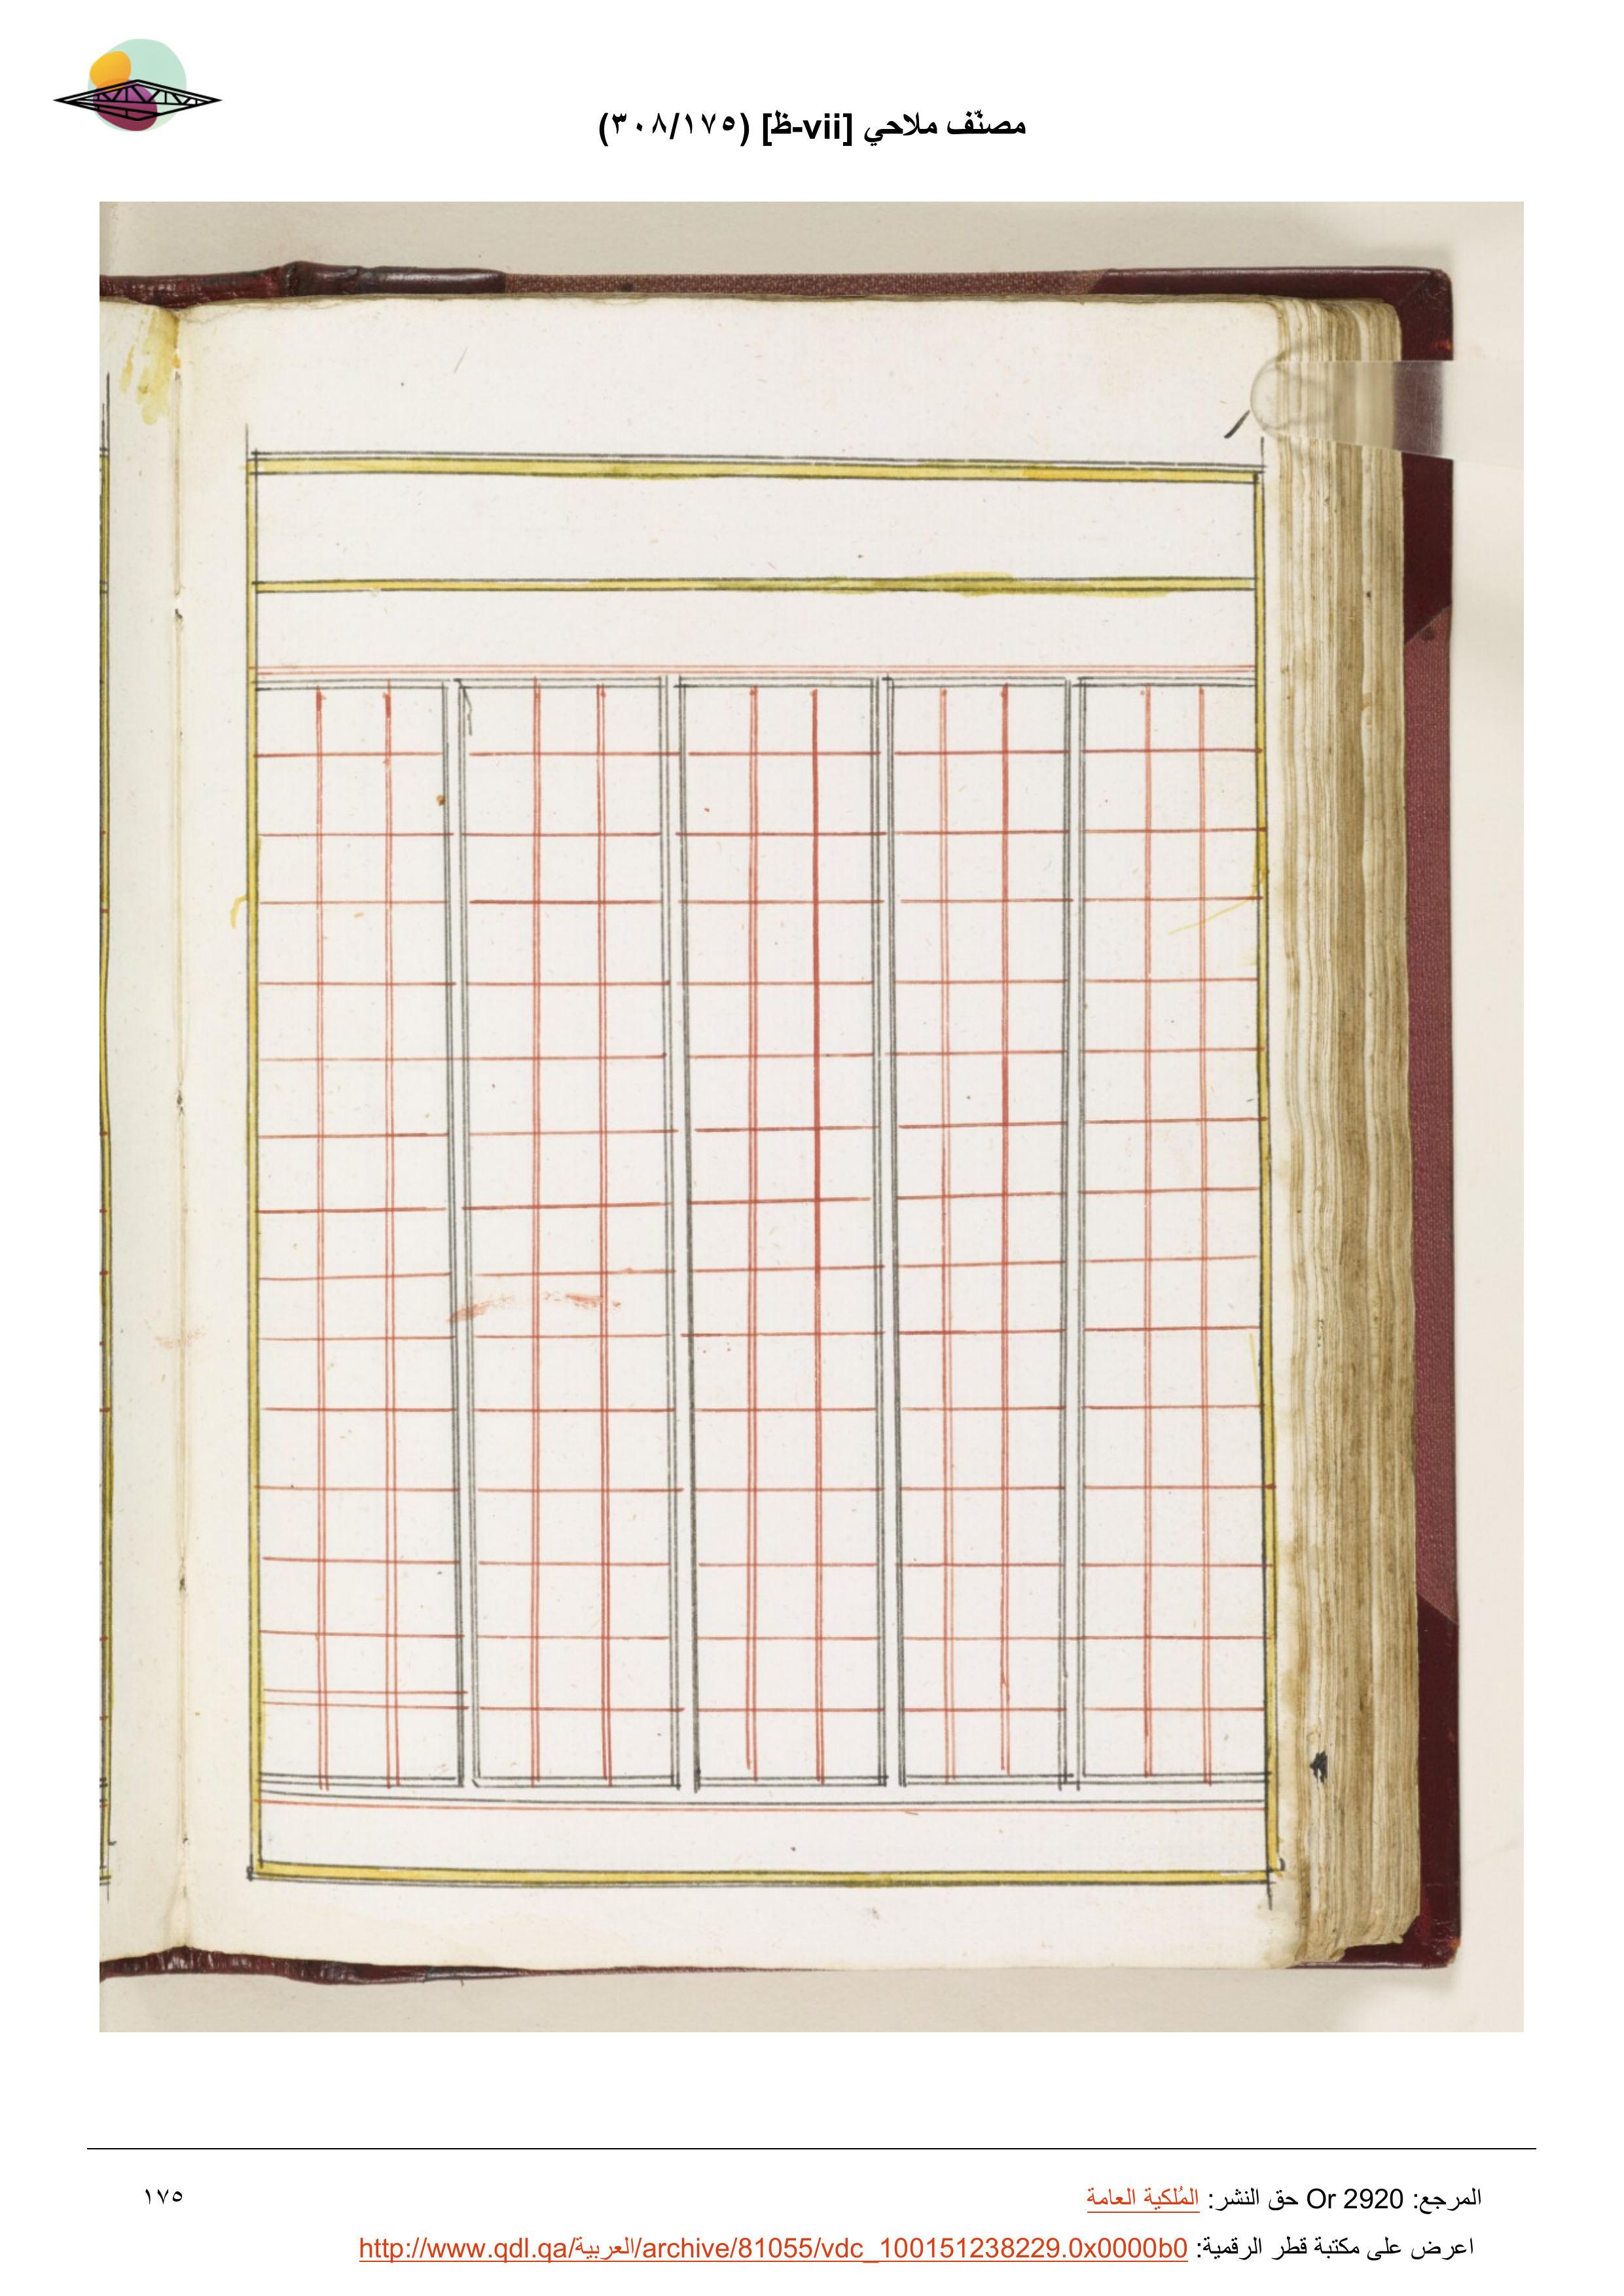 مصنّف ملاحي [vii-ظ] (٣٠٨/١٧٥)
المرجع: Or 2920 حق النشر: المُلكية العامة
١٧٥
اعرض على مكتبة قطر الرقمية: http://www.qdl.qa/العربية/archive/81055/vdc_100151238229.0x0000b0